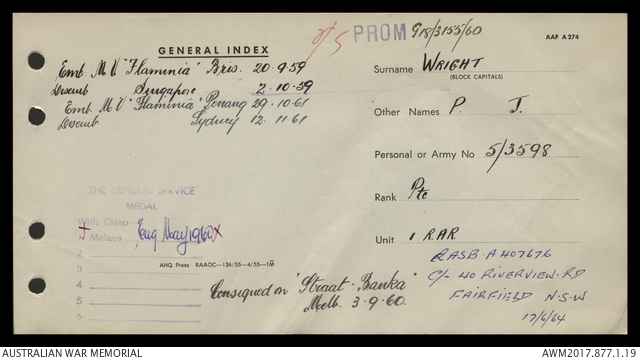 PROM 918/3155/60
AAF A 274
GENERAL INDEX
Emb. M V "Flaminia" Bris. 20-9.59
Disemb Singapore 2-10-59
Emb M.V "Flaminia" Penang 29.10.61
Disemb Sydney 12.11.61
Surname WRIGHT
(BLOCK CAPITALS)
Other Names P. J.
Personal or Army No 5/3598
Rank Pte
Unit 1 RAR
THE GENERAL SERVICE
MEDAL
With Clasp
1 Malaya Enq May 1960 X
2
3
4
5
6
AHQ Press RAAOC—136/55—4/55—1M
Consigned on "Straat Banka"
Melb. 3-9.60.
RASB-A407676
C/- 40 RIVERVIEW-RD
FAIRFIELD N.S.W
17/6/64
AUSTRALIAN WAR MEMORIAL
AWM2017.877.1.19